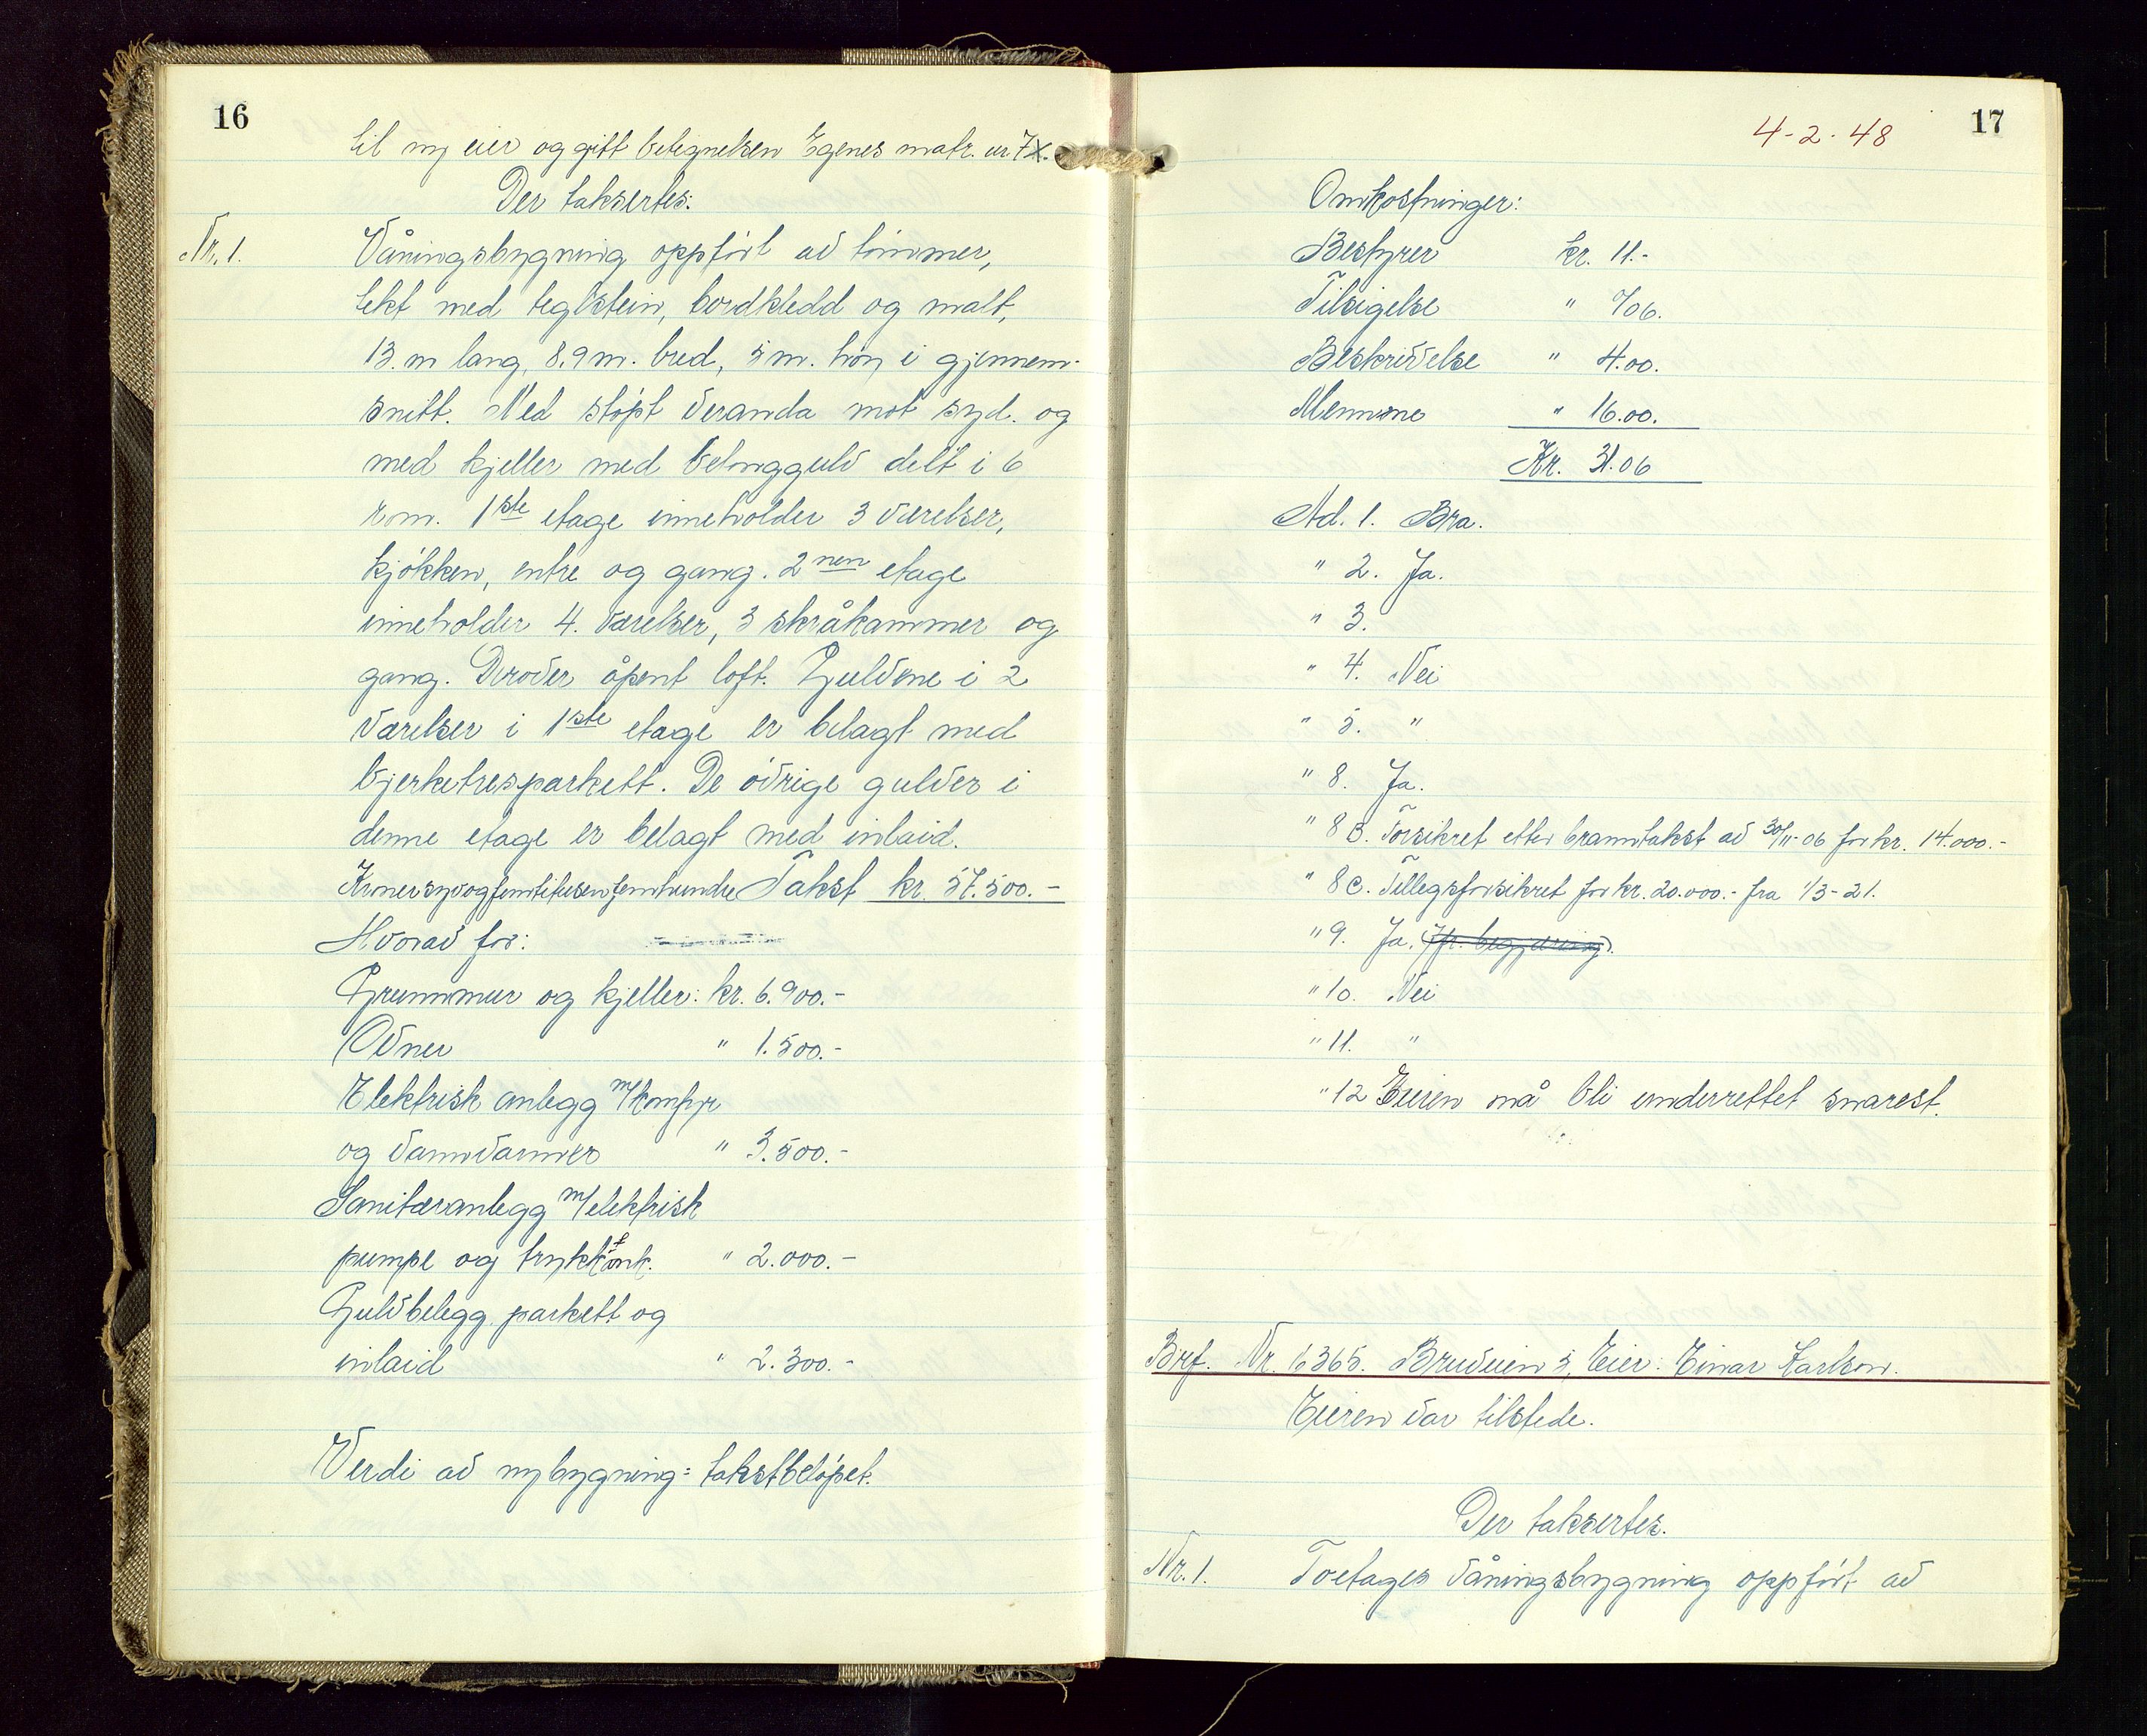 16
til ny eier og gitt betegnelsen Egenes matr. nr. 7x.
Der taksertes:
Nr. 1. Våningsbygning oppfört av tömmer,
tekt med teglstein, bordkledd og malt,
13. m lang, 8.9 m. bred, 5 m. höy i gjennem-
snitt. Med stöpt veranda mot syd. og
med kjeller med betonggulv delt i 6
rom. 1ste etage inneholder 3 værelser,
kjökken, entre og gang. 2nen etage
inneholder 4. værelser, 3 skråkammer og
gang. Derover åpent loft. Gulvene i 2
værelser i 1ste etage er belagt med
bjerketresparkett. De övrige gulver i
denne etage er belagt med inlaid.
Kronersyvogfemtitusenfemhundre Takst kr. 57.500.-
Hvorav for:
Grunnmur og kjeller: kr. 6.900.-
Ovner " 1.500.-
Elektrisk anlegg m/komfyr
og vannvarmer " 3.500.-
Sanitæranlegg m/elektrisk
pumpe og trykktank. " 2.000.-
Gulvbelegg, parkett og
inlaid " 2.300.-
Verdi av nybygning = takstbelöpet.
17
4-2-48
Omkostninger:
Bestyrer kr. 11.-
Tilsigelse " 0/06.
Beskrivelse " 4.00.
Mennene " 16.00.
Kr. 31.06
Ad. 1. Bra.
" 2. Ja.
" 3.
" 4. Nei
" 5. "
" 8. Ja.
" 8 B. Forsikret etter branntakst av 30/11-06 for kr. 14.000.-
" 8 C. Tilleggsforsikret for kr. 20.000.- fra 1/3-21.
" 9. Ja. (Jfr. begjæring).
" 10. Nei
" 11. "
" 12 Eieren må bli underrettet snarest.
Brf. Nr. 1365. Bruveien 5, Eier: Einar Karlson.
Eieren var tilstede.
Der taksertes.
Nr. 1. Toetages våningsbygning oppfört av